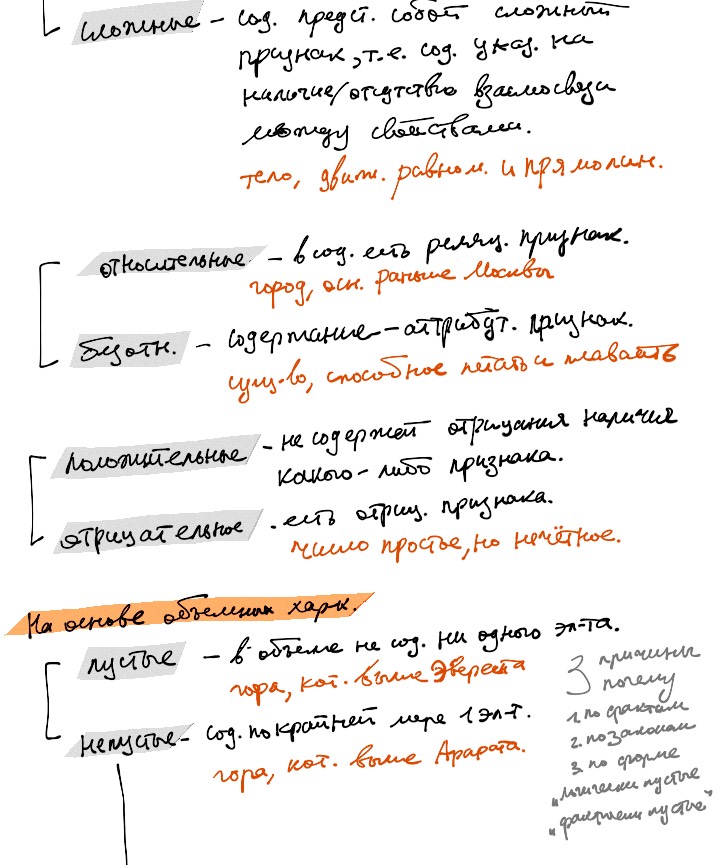 сложные – сод. предст. собой сложный
признак, т.е. сод. указ. на
наличие/отсутствие взаимосвязи
между свойствами.
тело, движ. равном. и прямолин.
относительные – в сод. есть реляц. признак.
город, осн. раньше Москвы
безотн. – содержание – аттрибут. признак.
сущ-во, способное летать и плавать
положительные – не содержат отрицания наличия
какого-либо признака.
отрицательное . есть отриц. признака.
число простое, но нечётное.
На основе объемных харк.
пустые – в объеме не сод. ни одного эл-та.
гора, кот. выше Эвереста
непустые – сод. по крайней мере 1 эл-т.
гора, кот. выше Арарата.
3 причины
почему
1. по фактам
2. по законам
3. по форме
"логически пустые
"фактически пустые"